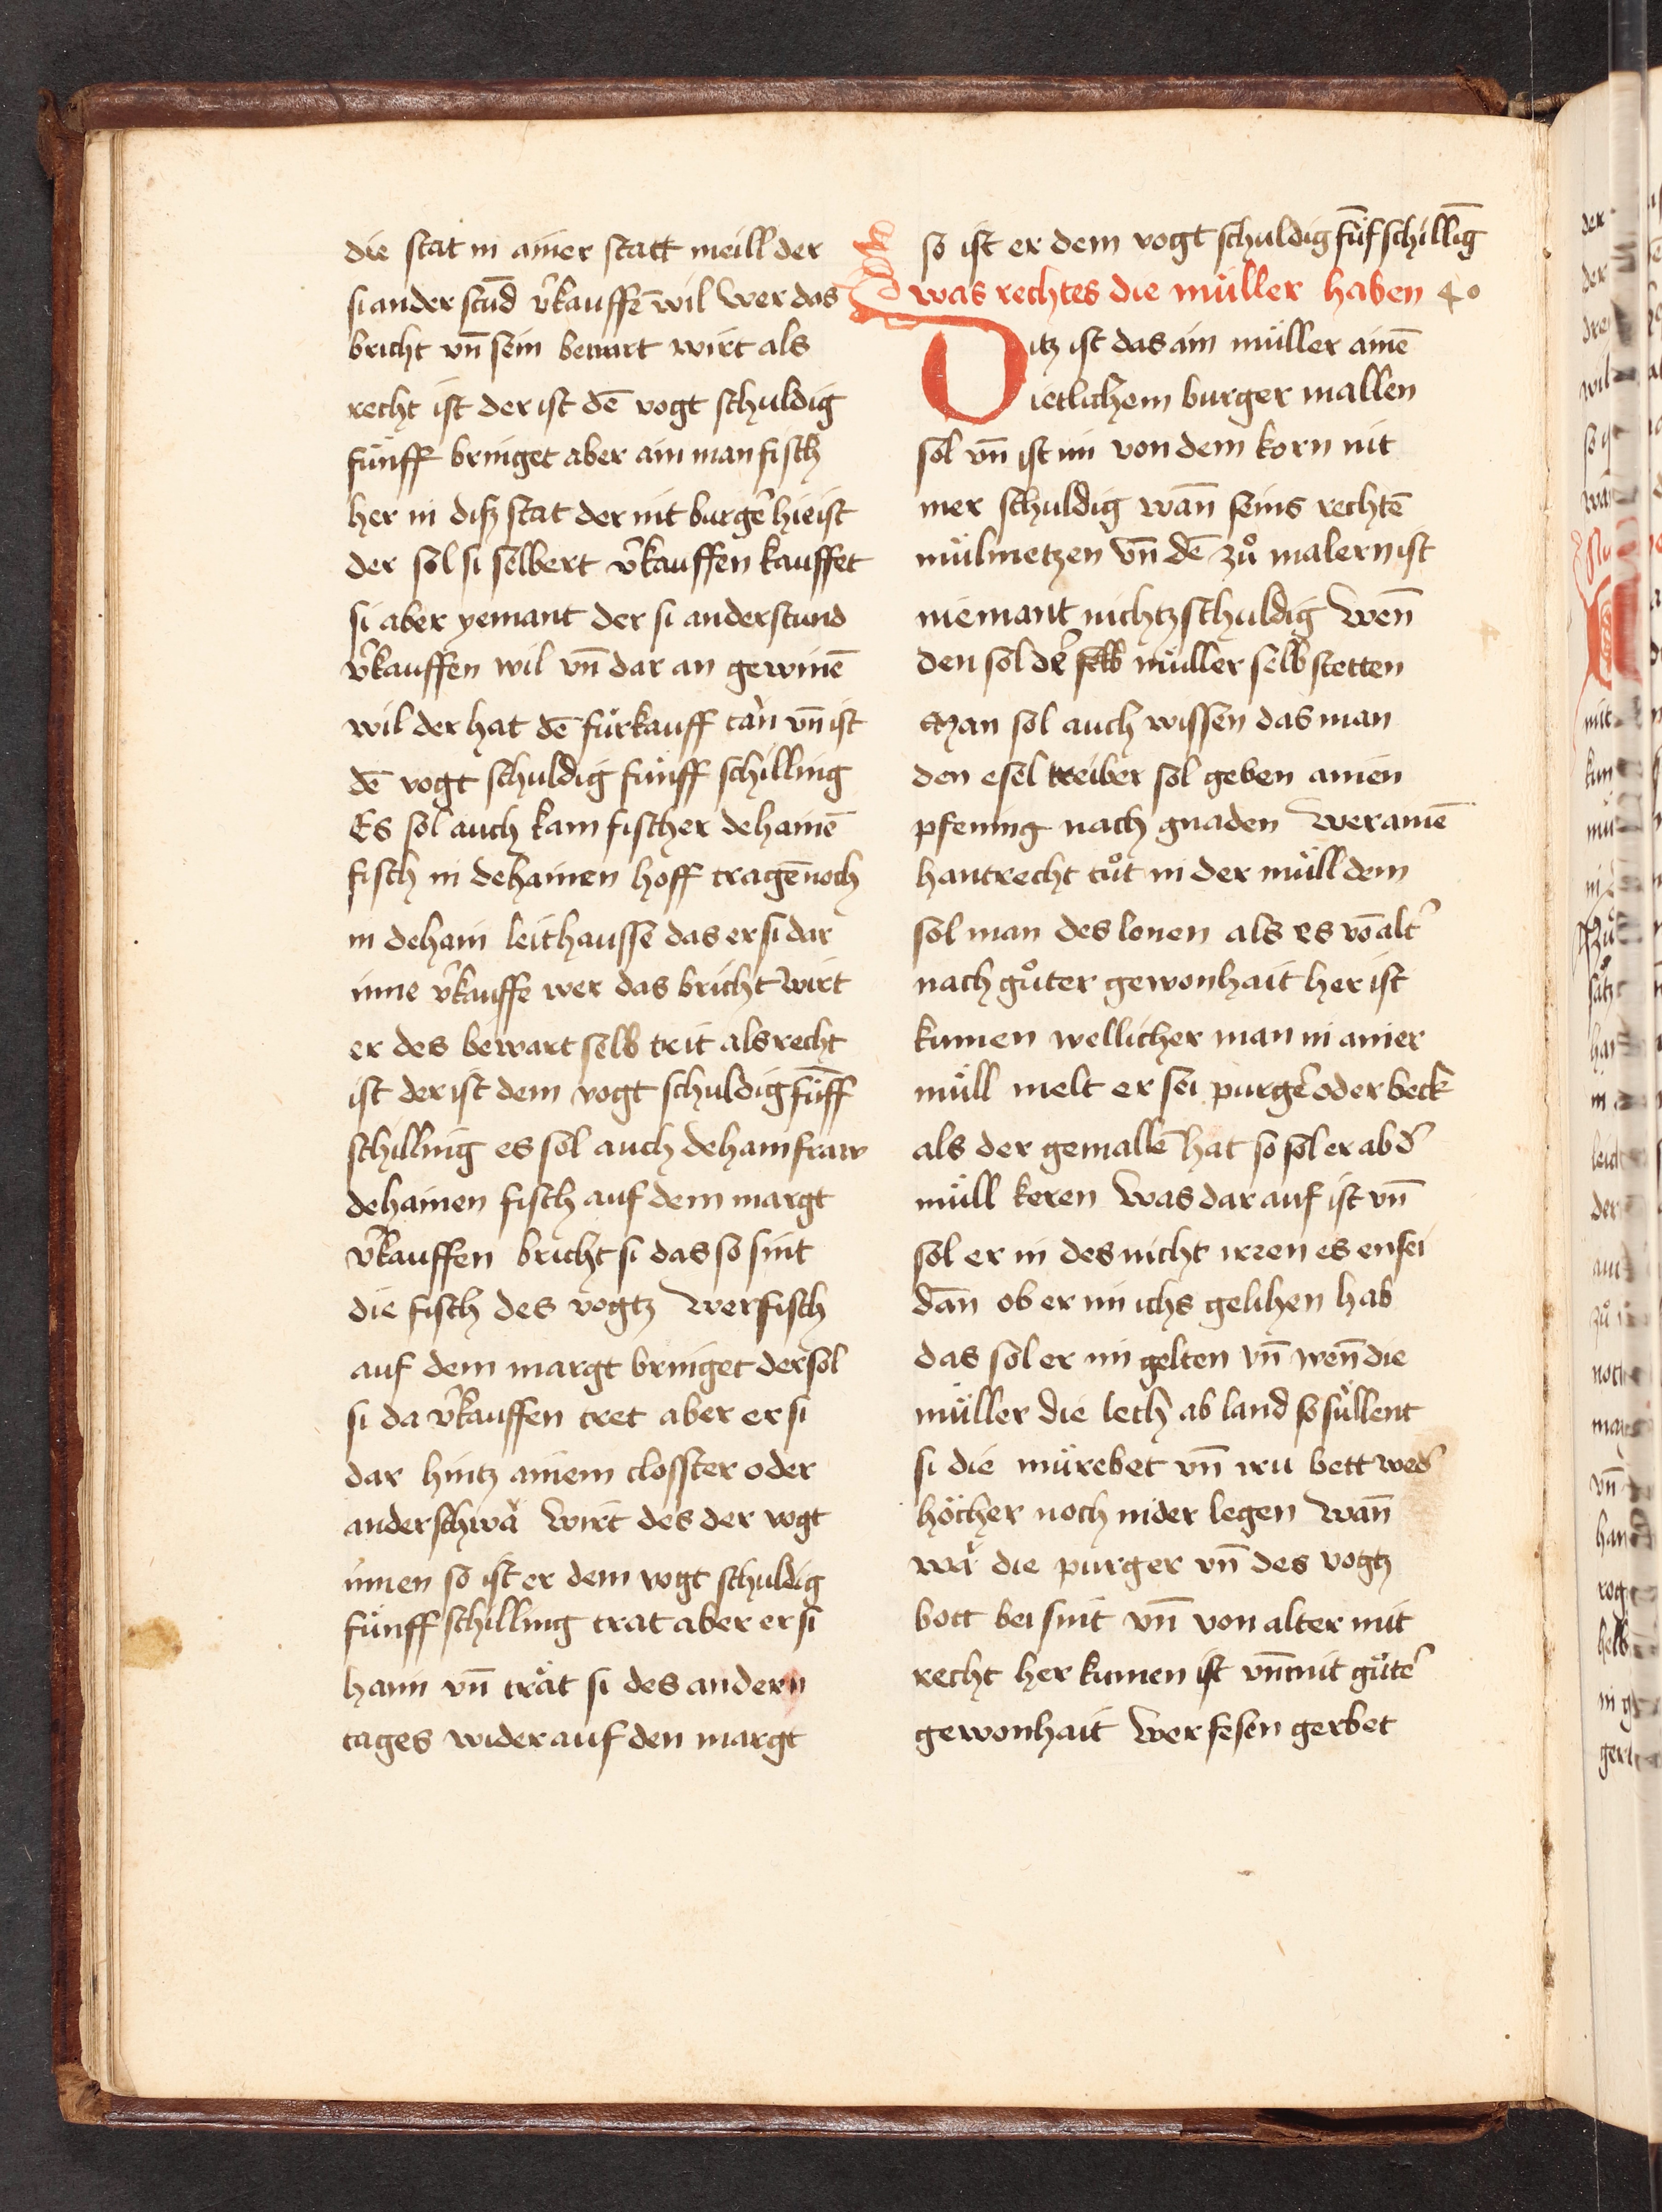 die stat in ainer statt meill der
si ander stund v̄kauffē wil wer das
bricht vn̄ sein bewart wirt als
recht ist der ist dē vogt schuldig
fünff bringet aber ain man fisch
her in diß stat der nit burgeͬ hie ist
der sol si selbert v̄kauffen kauffet
si aber yemant der si anderstund
v̄kauffen wil vn̄ dar an gewinē
wil der hat dē fürkauff tan vn̄ ist
dē vogt schuldig fünff schilling
Es sol auch kain fischer dehainē
fisch in dehainen hoff tragē noch
in dehain leithausse das er si dar
inne v̄kauffe wer das bricht wirt
er des bewart selb trit als recht
ist der ist dem vogt schuldig fünff
schilling es sol auch dehain fraw
dehainen fisch auf dem margt
v̄kauffen bricht si das so sint
die fisch des vogtz wer fisch
auf dem margt bringet der sol
si da v̄kauffen tret aber er si
dar hintz ainem closster oder
anderschwa wirt des der vogt
innen so ist er dem vogt schuldig
fünff schilling trat aber er si
haim vn̄ trät si des andern
tages wider auf den margt
so ist er dem vogt schuldig fünf schilling
was rechtes die müller haben 40
Ditz ist das ain müller ainē
ietlichem burger mallen
sol vn̄ ist im von dem korn nit
mer schuldig wan̄ seins rechtē
mülmetzen vn̄ dē zů malern ist
niemant nichtz schuldig wen̄
den sol deͬ selb müller selb stetten
Man sol auch wissen das man
den esel treiber sol geben ainen
pfening nach gnaden wer ainē
hantrecht tůt in der müll dem
sol man des lonen als es vō alt̄
nach gůter gewonhait her ist
kumen wellicher man in ainer
müll melt er sei purgeͬ oder beck
als der gemallē hat so sol er ab d̄
müll keren was dar auf ist vn̄
sol er in des nicht irren es ensei
dan ob er im ichs gelihen hab
das sol er im gelten vn̄ wen̄ die
müller die lech ab land so süllent
si die mürebet vn̄ iru bett wed̄
höcher noch nider legen wan̄
wa die purger vn̄ des vogtz
bott bei sint vn̄ von alter mit
recht her kumen ist vn̄ mit gůteͬ
gewonhait wer fesen gerbet